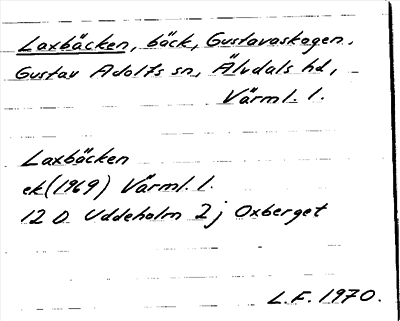 Laxbäcken, bäck, Gustavaskogen.
Gustav Adolfs sn, Älvdals hd,
Värml. l.
Laxbäcken
ek (1969) Värml. l.
12 D Uddeholm 2j Oxberget
L.F. 1970.